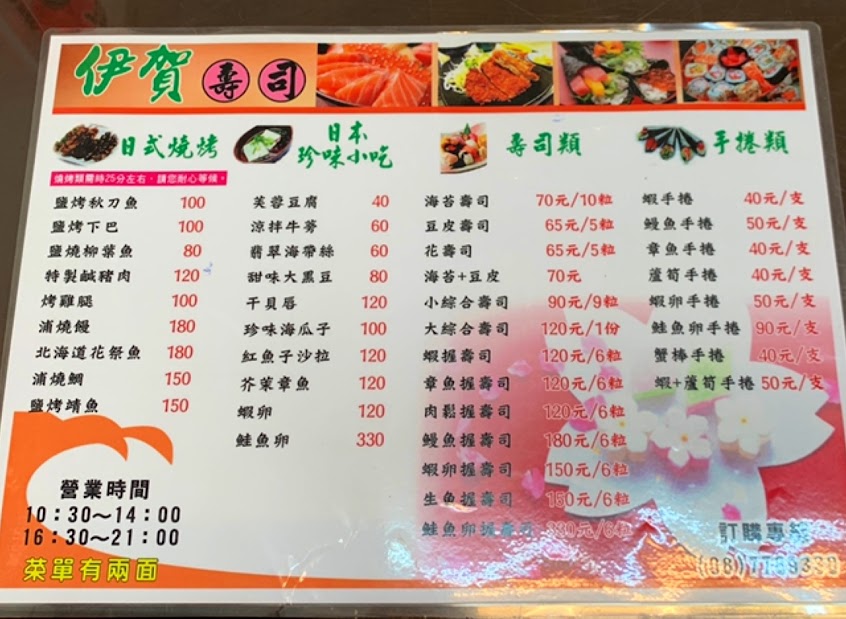 伊賀壽司
日式燒烤
燒烤類需時25分左右、請您耐心等候。
鹽烤秋刀魚 100
鹽烤下巴 100
鹽燒柳葉魚 80
特製鹹豬肉 120
烤雞腿 100
浦燒饅 180
北海道花祭魚 180
浦燒鯛 150
鹽烤靖魚 150
日本
珍味小吃
芙蓉豆腐 40
涼拌牛蒡 60
翡翠海帶絲 60
甜味大黑豆 80
干貝唇 120
珍味海瓜子 100
紅魚子沙拉 120
芥茉章魚 120
蝦卵 120
鮭魚卵 330
壽司類
海苔壽司 70元/10粒
豆皮壽司 65元/5粒
花壽司 65元/5粒
海苔+豆皮 70元
小綜合壽司 90元/9粒
大綜合壽司 120元/1份
蝦握壽司 120元/6粒
章魚握壽司 120元/6粒
肉鬆握壽司 120元/6粒
鰻魚握壽司 180元/6粒
蝦卵握壽司 150元/6粒
生魚握壽司 150元/6粒
鮭魚卵握壽司 330元/6粒
手捲類
蝦手捲 40元/支
鰻魚手捲 50元/支
章魚手捲 40元/支
蘆筍手捲 40元/支
蝦卵手捲 50元/支
鮭魚卵手捲 90元/支
蟹棒手捲 40元/支
蝦+蘆筍手捲 50元/支
營業時間
10：30～14：00
16：30～21：00
菜單有兩面
訂購專線